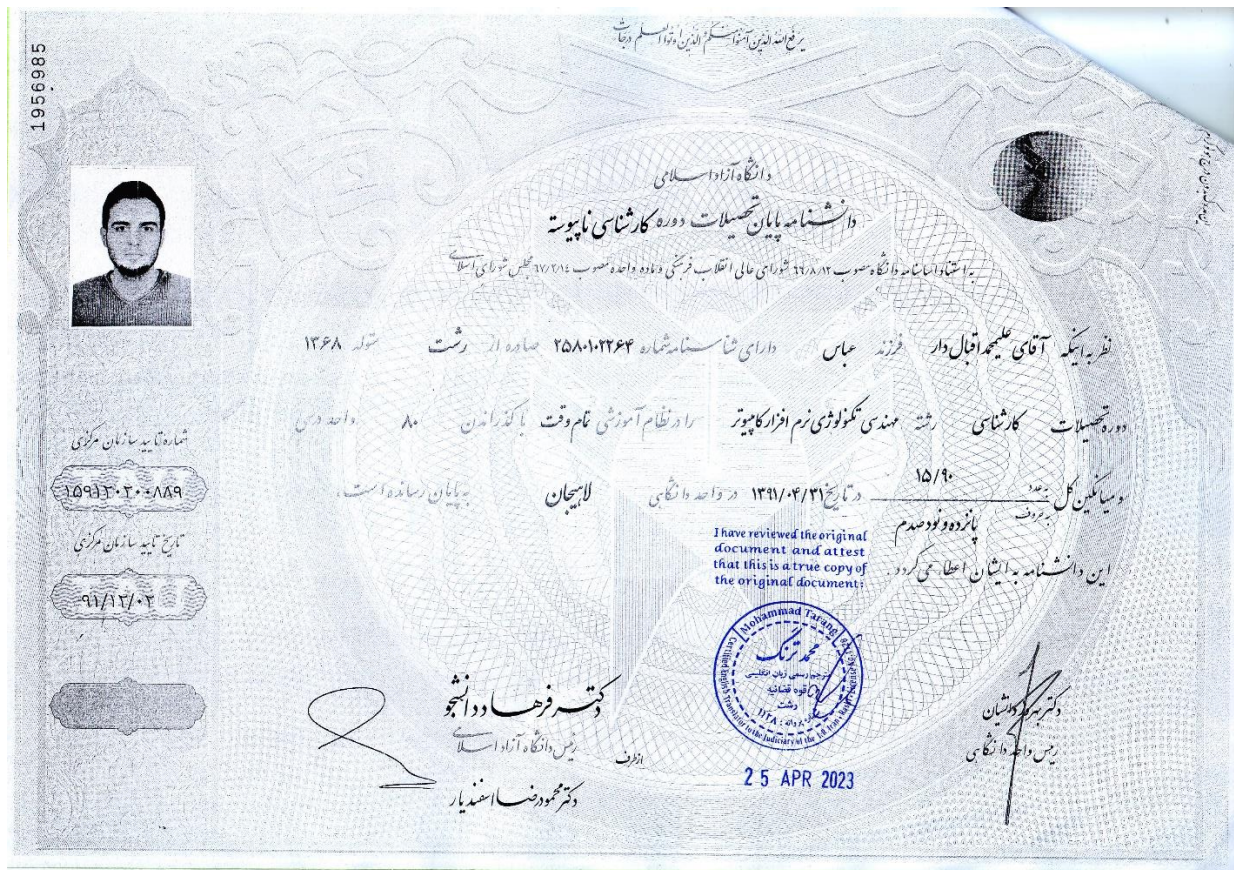 یرفع الله الذین آمنوا منکم و الذین اوتوا العلم درجات
1956985
دانشگاه آزاد اسلامی
دانشنامه پایان تحصیلات دوره کارشناسی ناپیوسته
به استناد اساسنامه دانشگاه مصوب ۶۶/۸/۱۲ شورای عالی انقلاب فرهنگی و ماده واحده مصوب ۶۷/۲/۱۴ مجلس شورای اسلامی
نظر به اینکه آقای علیمحمد اقبال دار فرزند عباس دارای شناسنامه شماره ۲۵۸۰۱۰۲۲۶۴ صادره از رشت متولد ۱۳۶۸
دوره تحصیلات کارشناسی رشته مهندسی تکنولوژی نرم افزار کامپیوتر را در نظام آموزشی تمام وقت با گذراندن ۸۰ واحد درسی
و میانگین کل به عدد ۱۵/۹۰ به حروف پانزده و نود صدم در تاریخ ۱۳۹۱/۰۴/۳۱ در واحد دانشگاهی لاهیجان به پایان رسانده است،
این دانشنامه به ایشان اعطاء می گردد.
شماره تایید سازمان مرکزی
۱۵۹۱۲۰۲۰۰۸۸۹
تاریخ تایید سازمان مرکزی
۹۱/۱۲/۰۲
I have reviewed the original
document and attest
that this is a true copy of
the original document:
Mohammad Tarang
محمد ترنگ
مترجم رسمی زبان انگلیسی
قوه قضائیه
رشت
شماره پروانه : ۱۱۲۸
Certified English Translator to the Judiciary of the I.R. Iran
25 APR 2023
رییس واحد دانشگاهی
دکتر فرهاد دانشجو
رئیس دانشگاه آزاد اسلامی
از طرف
دکتر محمودرضا اسفندیار